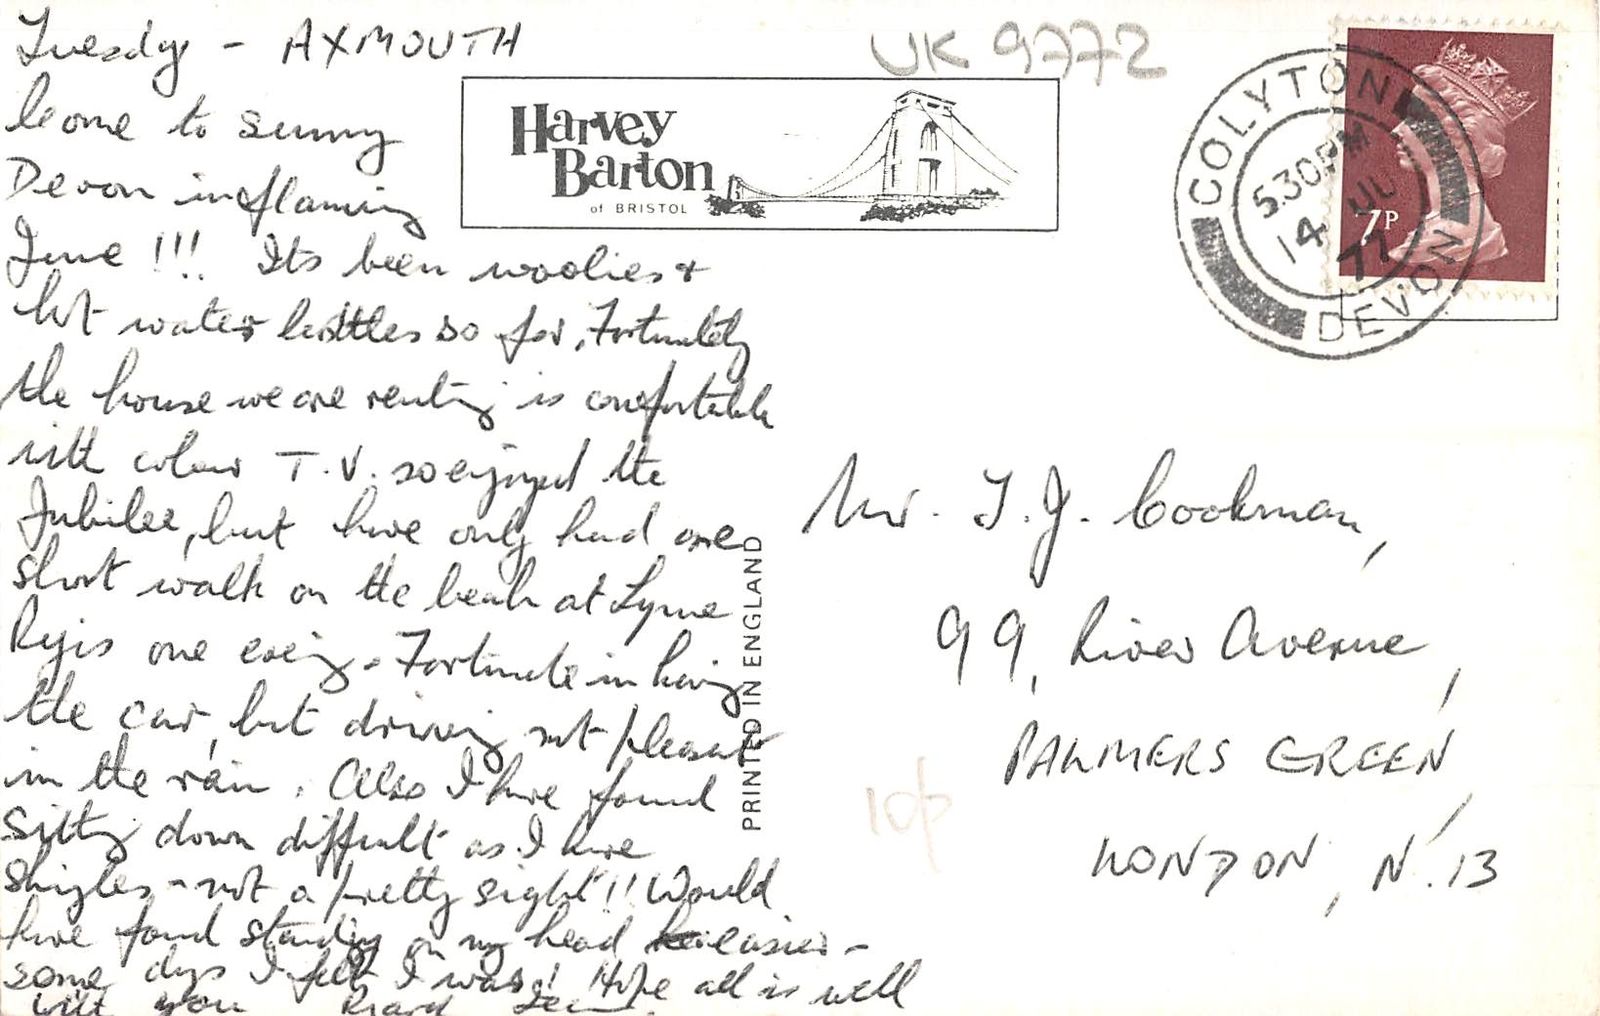 Tuesday - AXMOUTH
UK 9772
Come to sunny
Devon in flaming
June !!! Its been woolies &
hot water bottles so far, Fortunately
the house we are renting is comfortable
with colour T.V. so enjoyed the
Jubilee, but have only had one
short walk on the beach at Lyme
Regis one evening. Fortunate in having
the car, but driving not pleasant
in the rain. Also I have found
sitting down difficult as I have
Shingles - not a pretty sight!! Would
have found standing on my head easier -
some days I felt I was! Hope all is well
with you
Harvey
Barton
of BRISTOL
COLYTON
5.30PM
14 JU
77
DEVON
7P
PRINTED IN ENGLAND
Mr. T. J. Cookman,
99, River Avenue,
PALMERS GREEN,
LONDON, N.13
10p